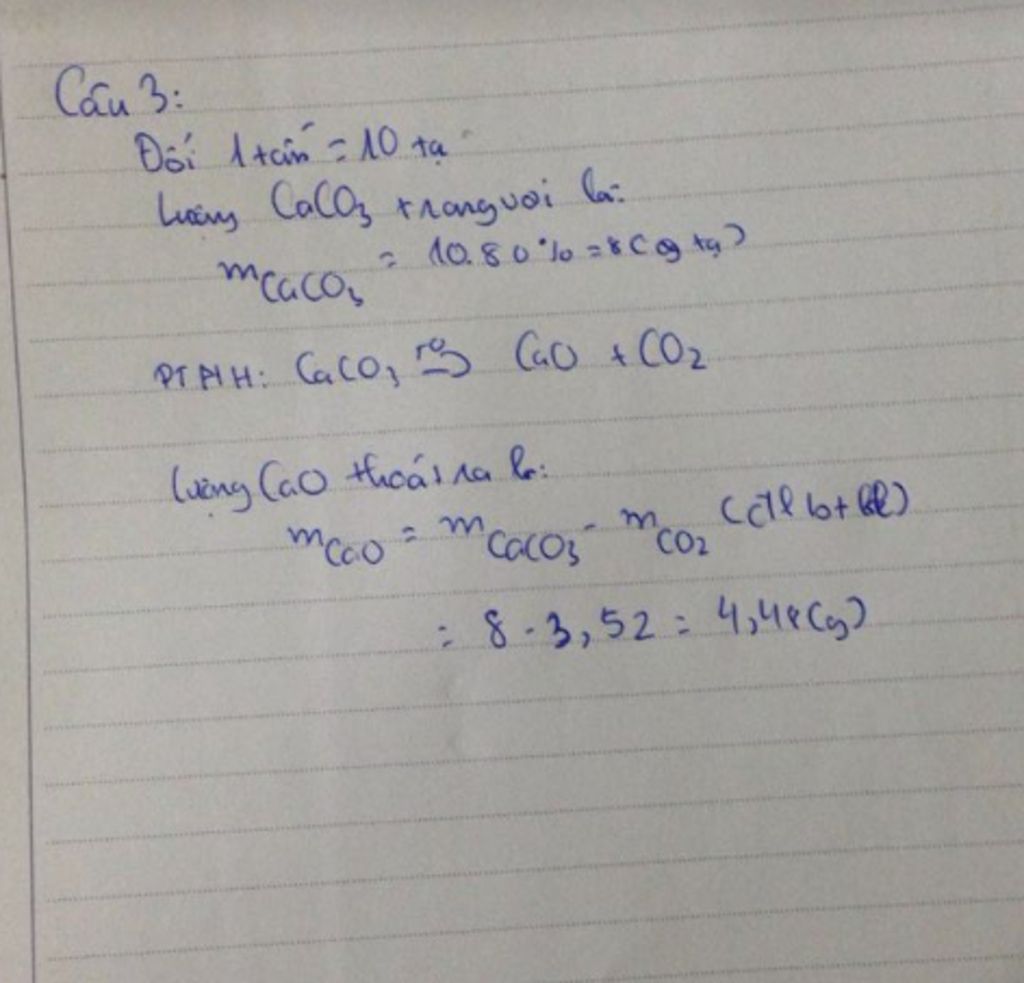 Câu 3:
Đổi 1 tấn = 10 tạ
Lượng CaCO3 trong vôi là:
mCaCO3 = 10.80% = 8 ( tạ)
PTPƯH: CaCO3 t° → CaO + CO2
Lượng CaO thoát ra là:
mCaO = mCaCO3 - mCO2 (
= 8 - 3,52 = 4,48(g)